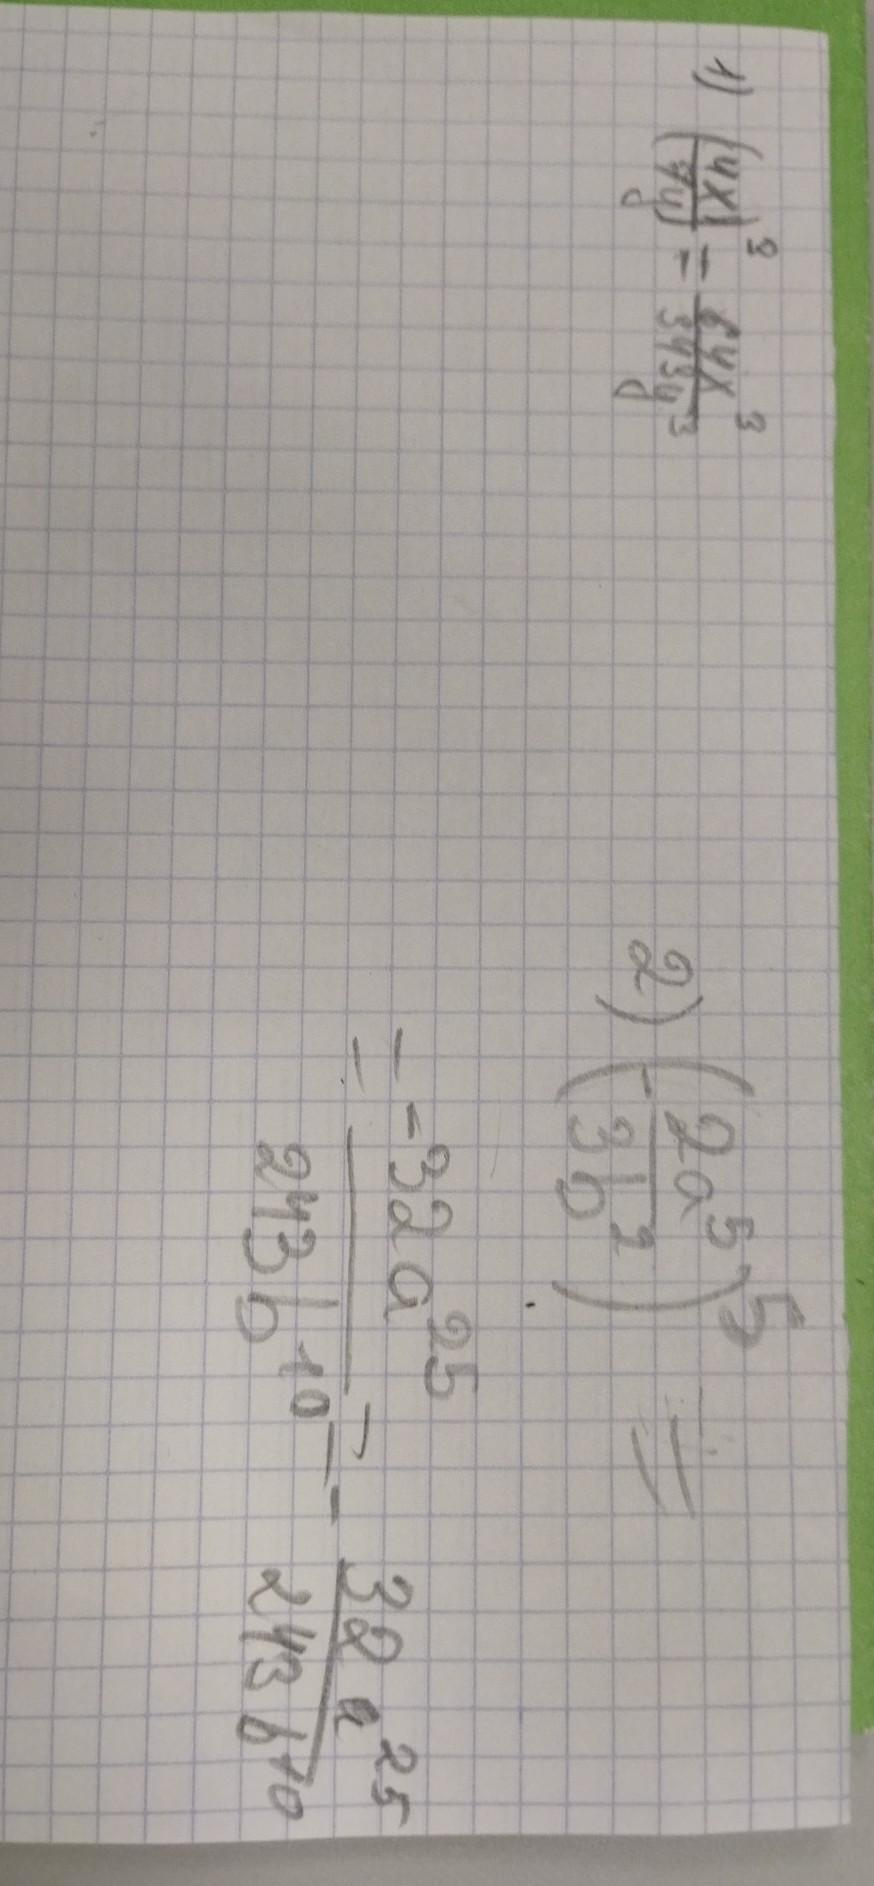 1) (4x/7y)³ = 64x³/343y³
2) (-2a⁵/3b²)⁵ =
= -32a²⁵/243b¹⁰ = - 32a²⁵/243b¹⁰